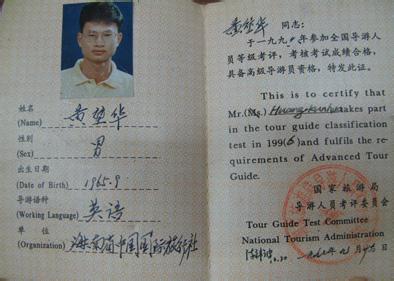 姓名
(Name) 黄堃华
性别
(Sex) 男
出生日期
(Date of Birth) 1965.9
导游语种
(Working Language) 英语
单位
(Organization) 海南省中国国际旅行社
黄堃华 同志:
于一九九 年参加全国导游人
员等级考评,考核考试成绩合格,
具备高级导游员资格,特发此证。
This is to certify that
Mr.(Ms.) Huang takes part
in the tour guide classification
test in 199(6) and fulfils the re-
quirements of Advanced Tour
Guide.
国家旅游局
导游人员考评委员会
Tour Guide Test Committee
National Tourism Administration